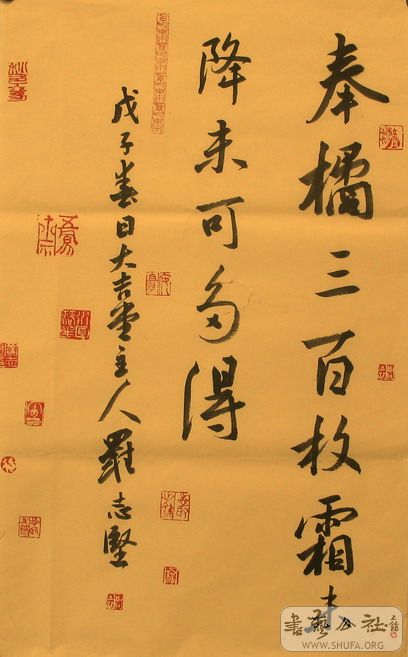 奉橘三百枚霜未
降未可多得
戊子春日大吉堂主人羅志堅
書藝公社
WWW.SHUFA.ORG